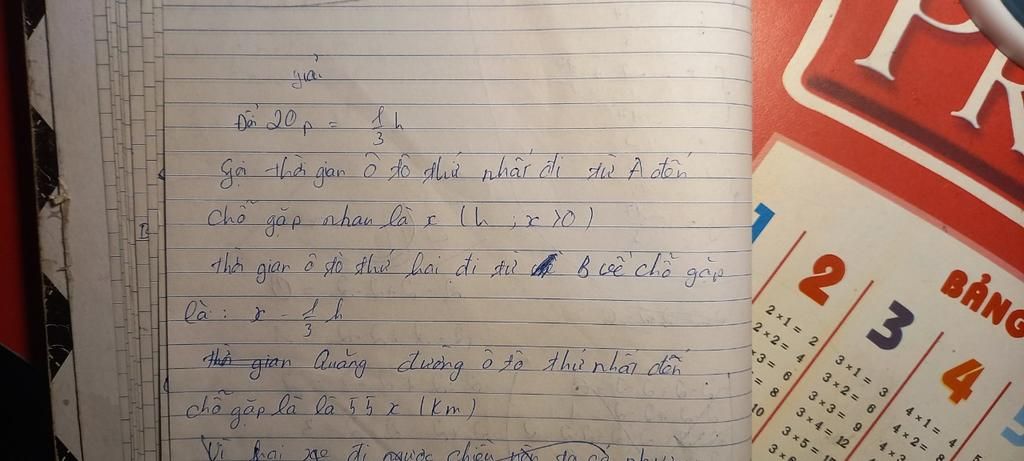 giải
Đổi 20p = 1/3 h
Gọi thời gian ô tô thứ nhất đi từ A đến
chỗ gặp nhau là x (h, x>0)
thời gian ô tô thứ hai đi từ B về chỗ gặp
là: x - 1/3 h
thời gian Quãng đường ô tô thứ nhất đến
chỗ gặp là là 55x (km)
Vì hai xe đi ngược chiều
PR
B
1
2
2×1= 2
2×2= 4
×3= 6
= 8
10
3
3×1= 3
3×2= 6
3×3= 9
3×4= 12
3×5=
4
4×1= 4
4×2= 8
BẢNG